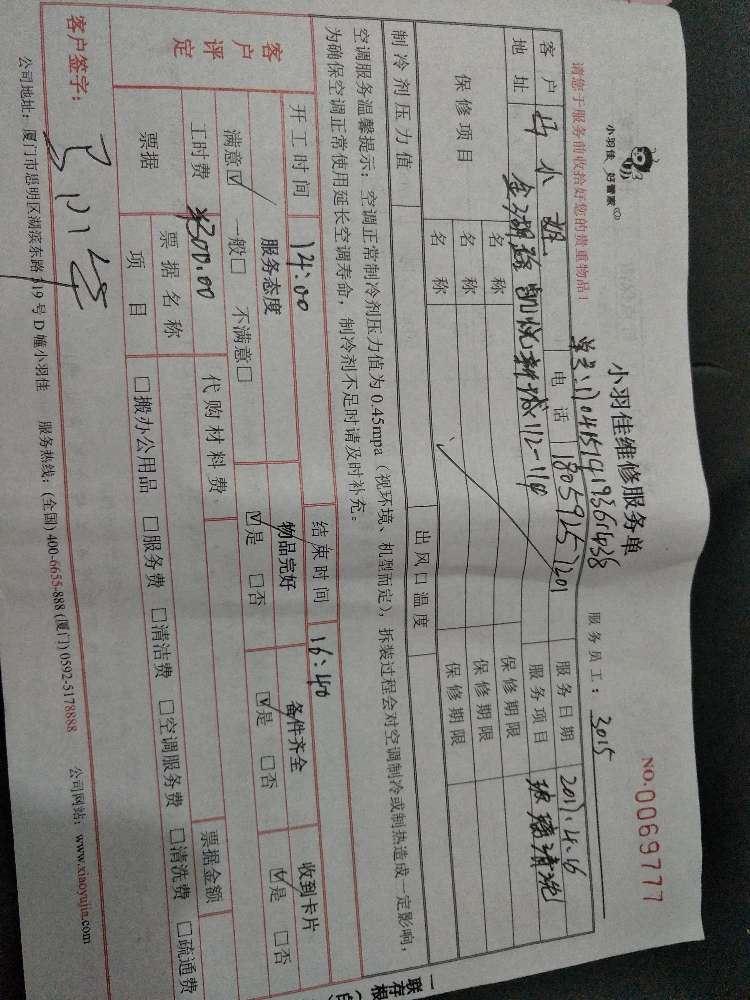 小羽佳 好管家
小羽佳维修服务单
NO.0069777
请您于服务前收拾好您的贵重物品!
单号:17041514193661438
服务员工: 3015
客户 马小姐 电话 18059251201 服务日期 2017.4.16
地址 金湖路凯悦新城112-110 服务项目 玻璃清洗
保修项目 名称 保修期限
名称 保修期限
名称 保修期限
制冷剂压力值 出风口温度
空调服务温馨提示:空调正常制冷剂压力值为0.45mpa(视环境、机型而定),拆装过程会对空调制冷或制热造成一定影响,
为确保空调正常使用延长空调寿命,制冷剂不足时请及时补充。
客户评定 开工时间 14:00 结束时间 16:40
服务态度 物品完好 备件齐全 收到卡片
满意☑ 一般□ 不满意□ ☑是 □否 ☑是 □否 ☑是 □否
工时费 ¥300.00 代购材料费
票据 票据名称 票据金额
项目 □搬办公用品 □服务费 □清洁费 □空调服务费 □清洗费 □疏通费
客户签字:
公司地址:厦门市思明区湖滨东路319号D幢小羽佳 服务热线:(全国)400-6655-888(厦门)0592-5178888 公司网站:www.xiaoyujia.com
一联存根